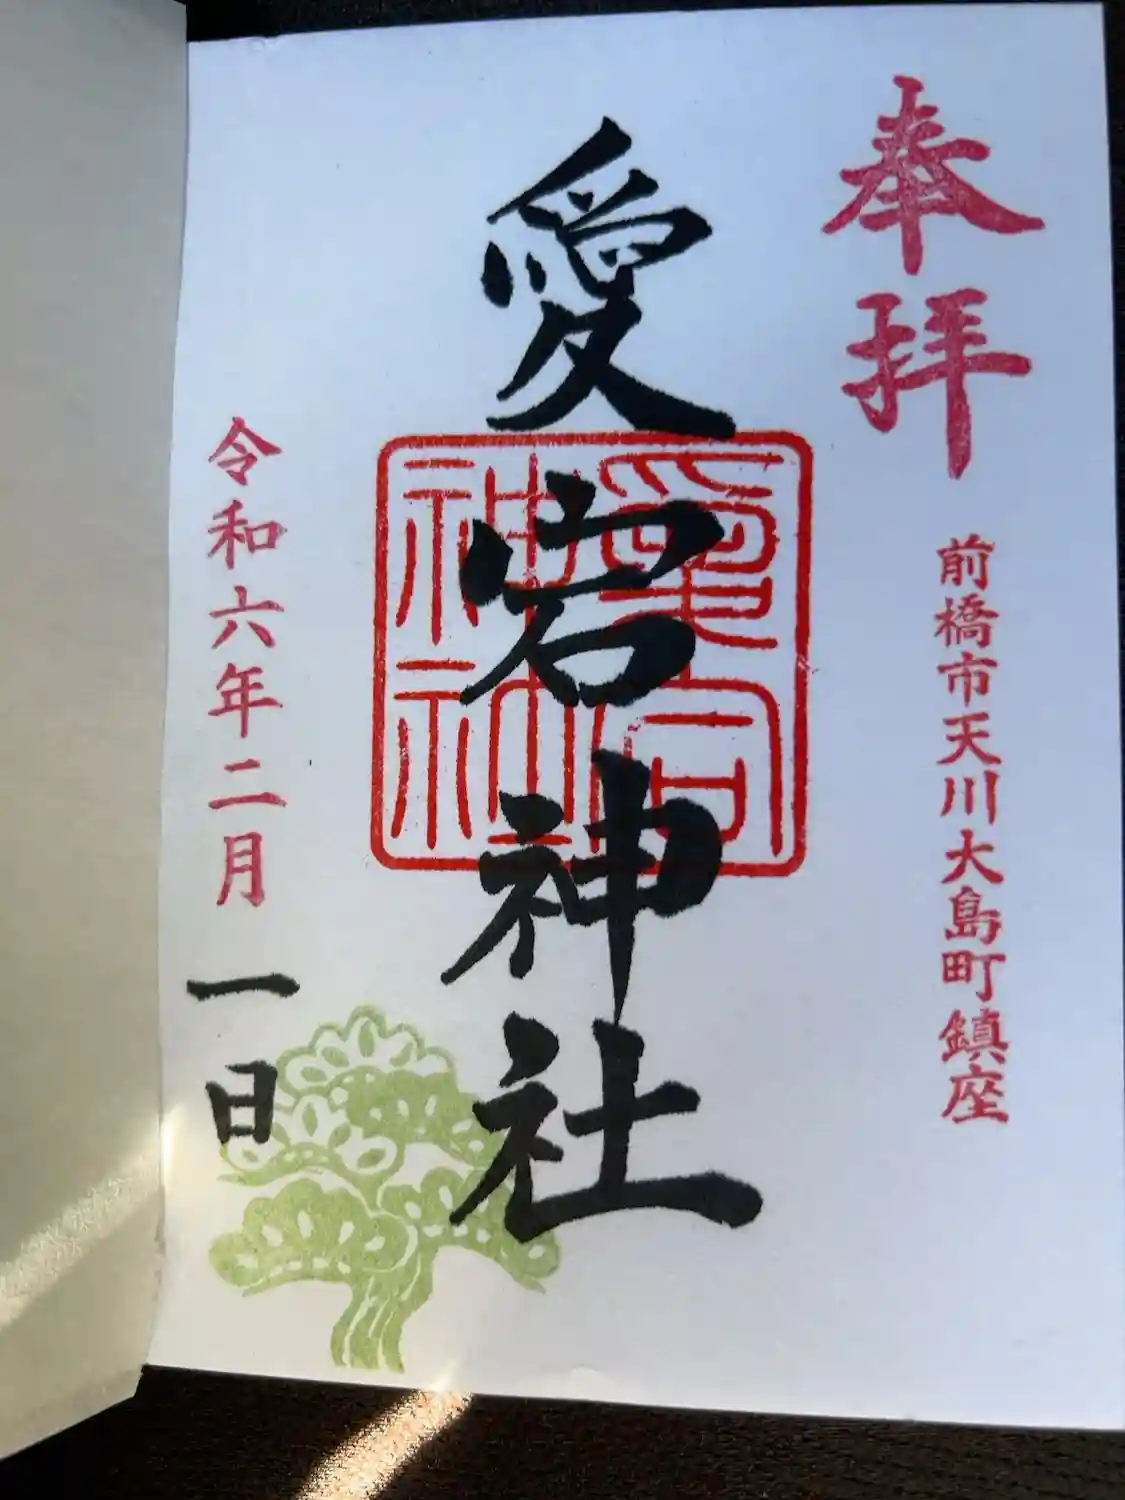 奉拝
前橋市天川大島町鎮座
愛宕神社
愛宕神社
令和六年二月一日